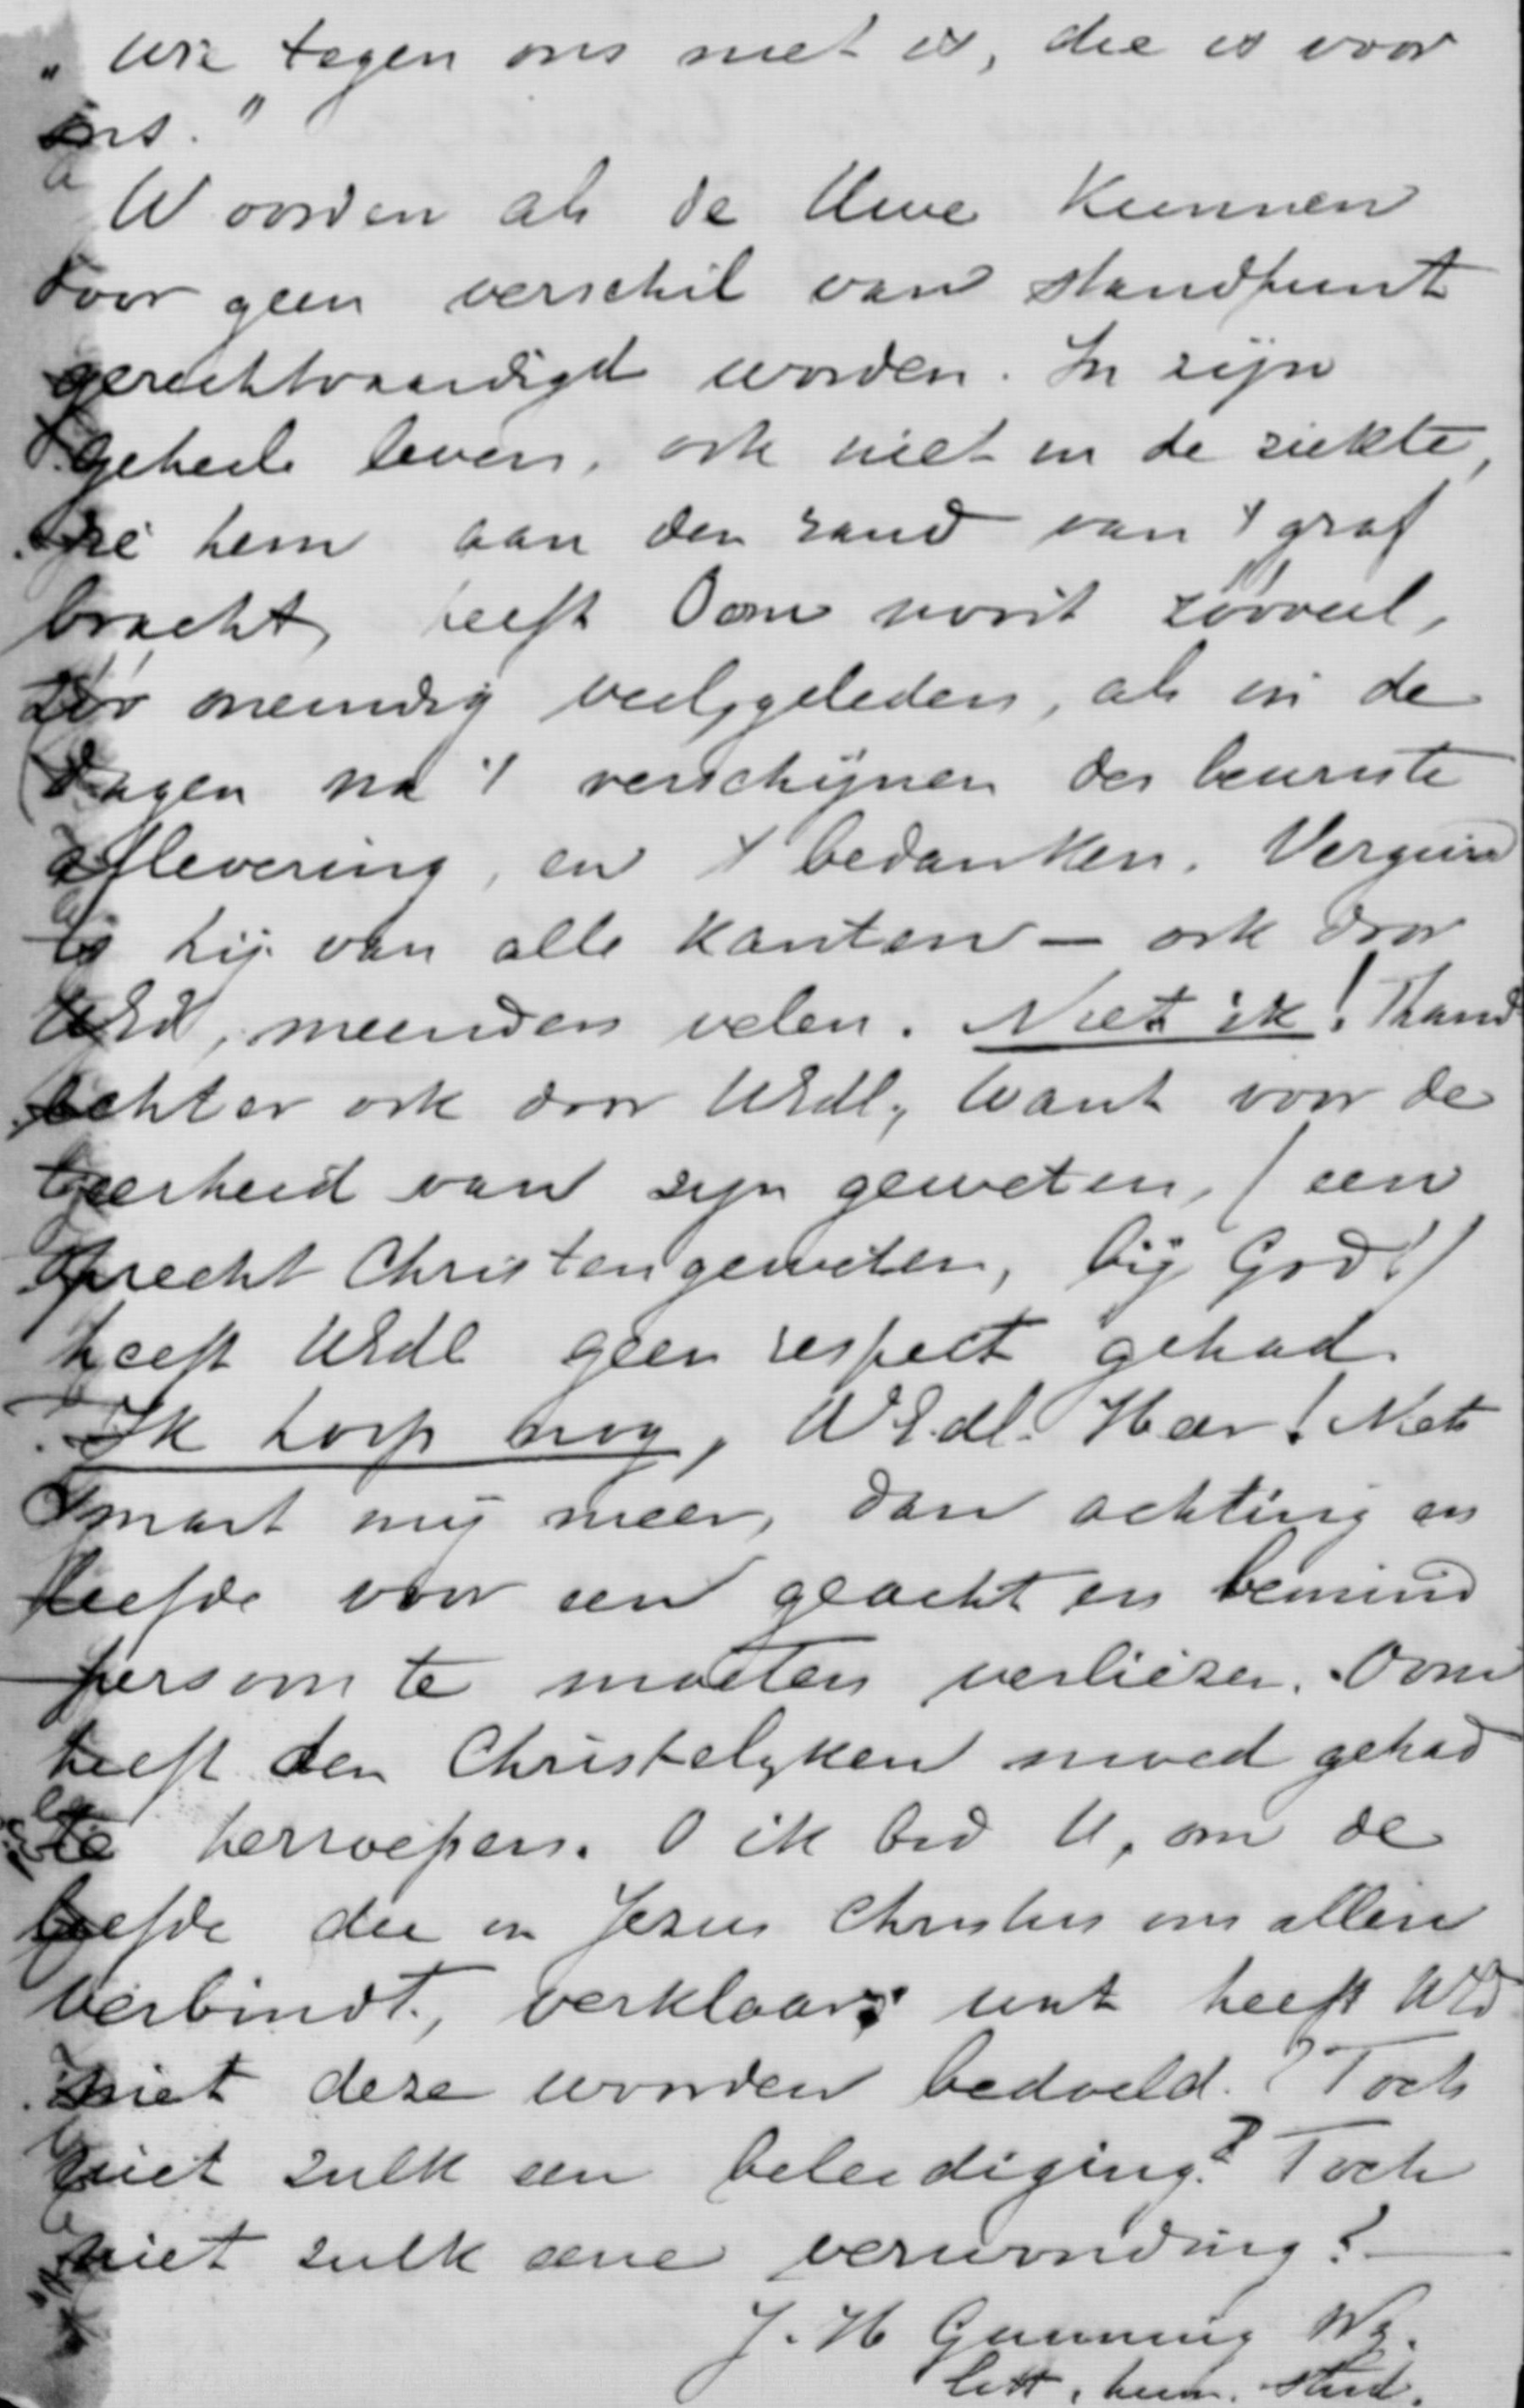 „Wie tegen ons niet is, die is voor
ons."
Woorden als de Uwe kunnen
door geen verschil van standpunt
gerechtvaardigd worden. In zijn
geheele leven, ook niet in de ziekte,
die hem aan den rand van 't graf
bracht, heeft Oom nooit zóóveel,
zóó oneindig veel, geleden, als in de
dagen na 't verschijnen der bewuste
aflevering, en 't bedanken. Verguisd
is hij van alle kanten – ook door
UEd, meenden velen. Niet ik! Thans
echter ook door UEdl, want voor de
teerheid van zijn geweten, (een
oprecht Christengeweten, bij God!)
heeft UEdl geen respect gehad.
Ik hoop nog, WEdl. Heer! Niets
smart mij meer, dan achting en
liefde voor een geacht en bemind
persoon te moeten verliezen. Oom
heeft den Christelyken moed gehad
te herroepen. O ik bid U, om de
liefde die in Jezus Christus ons allen
verbindt, verklaar: wat heeft UEd
met deze woorden bedoeld? Toch
niet zulk een beleediging? Toch
niet zulk eene verwonding?
J. H Gunning Wz.
litt. hum. stud.